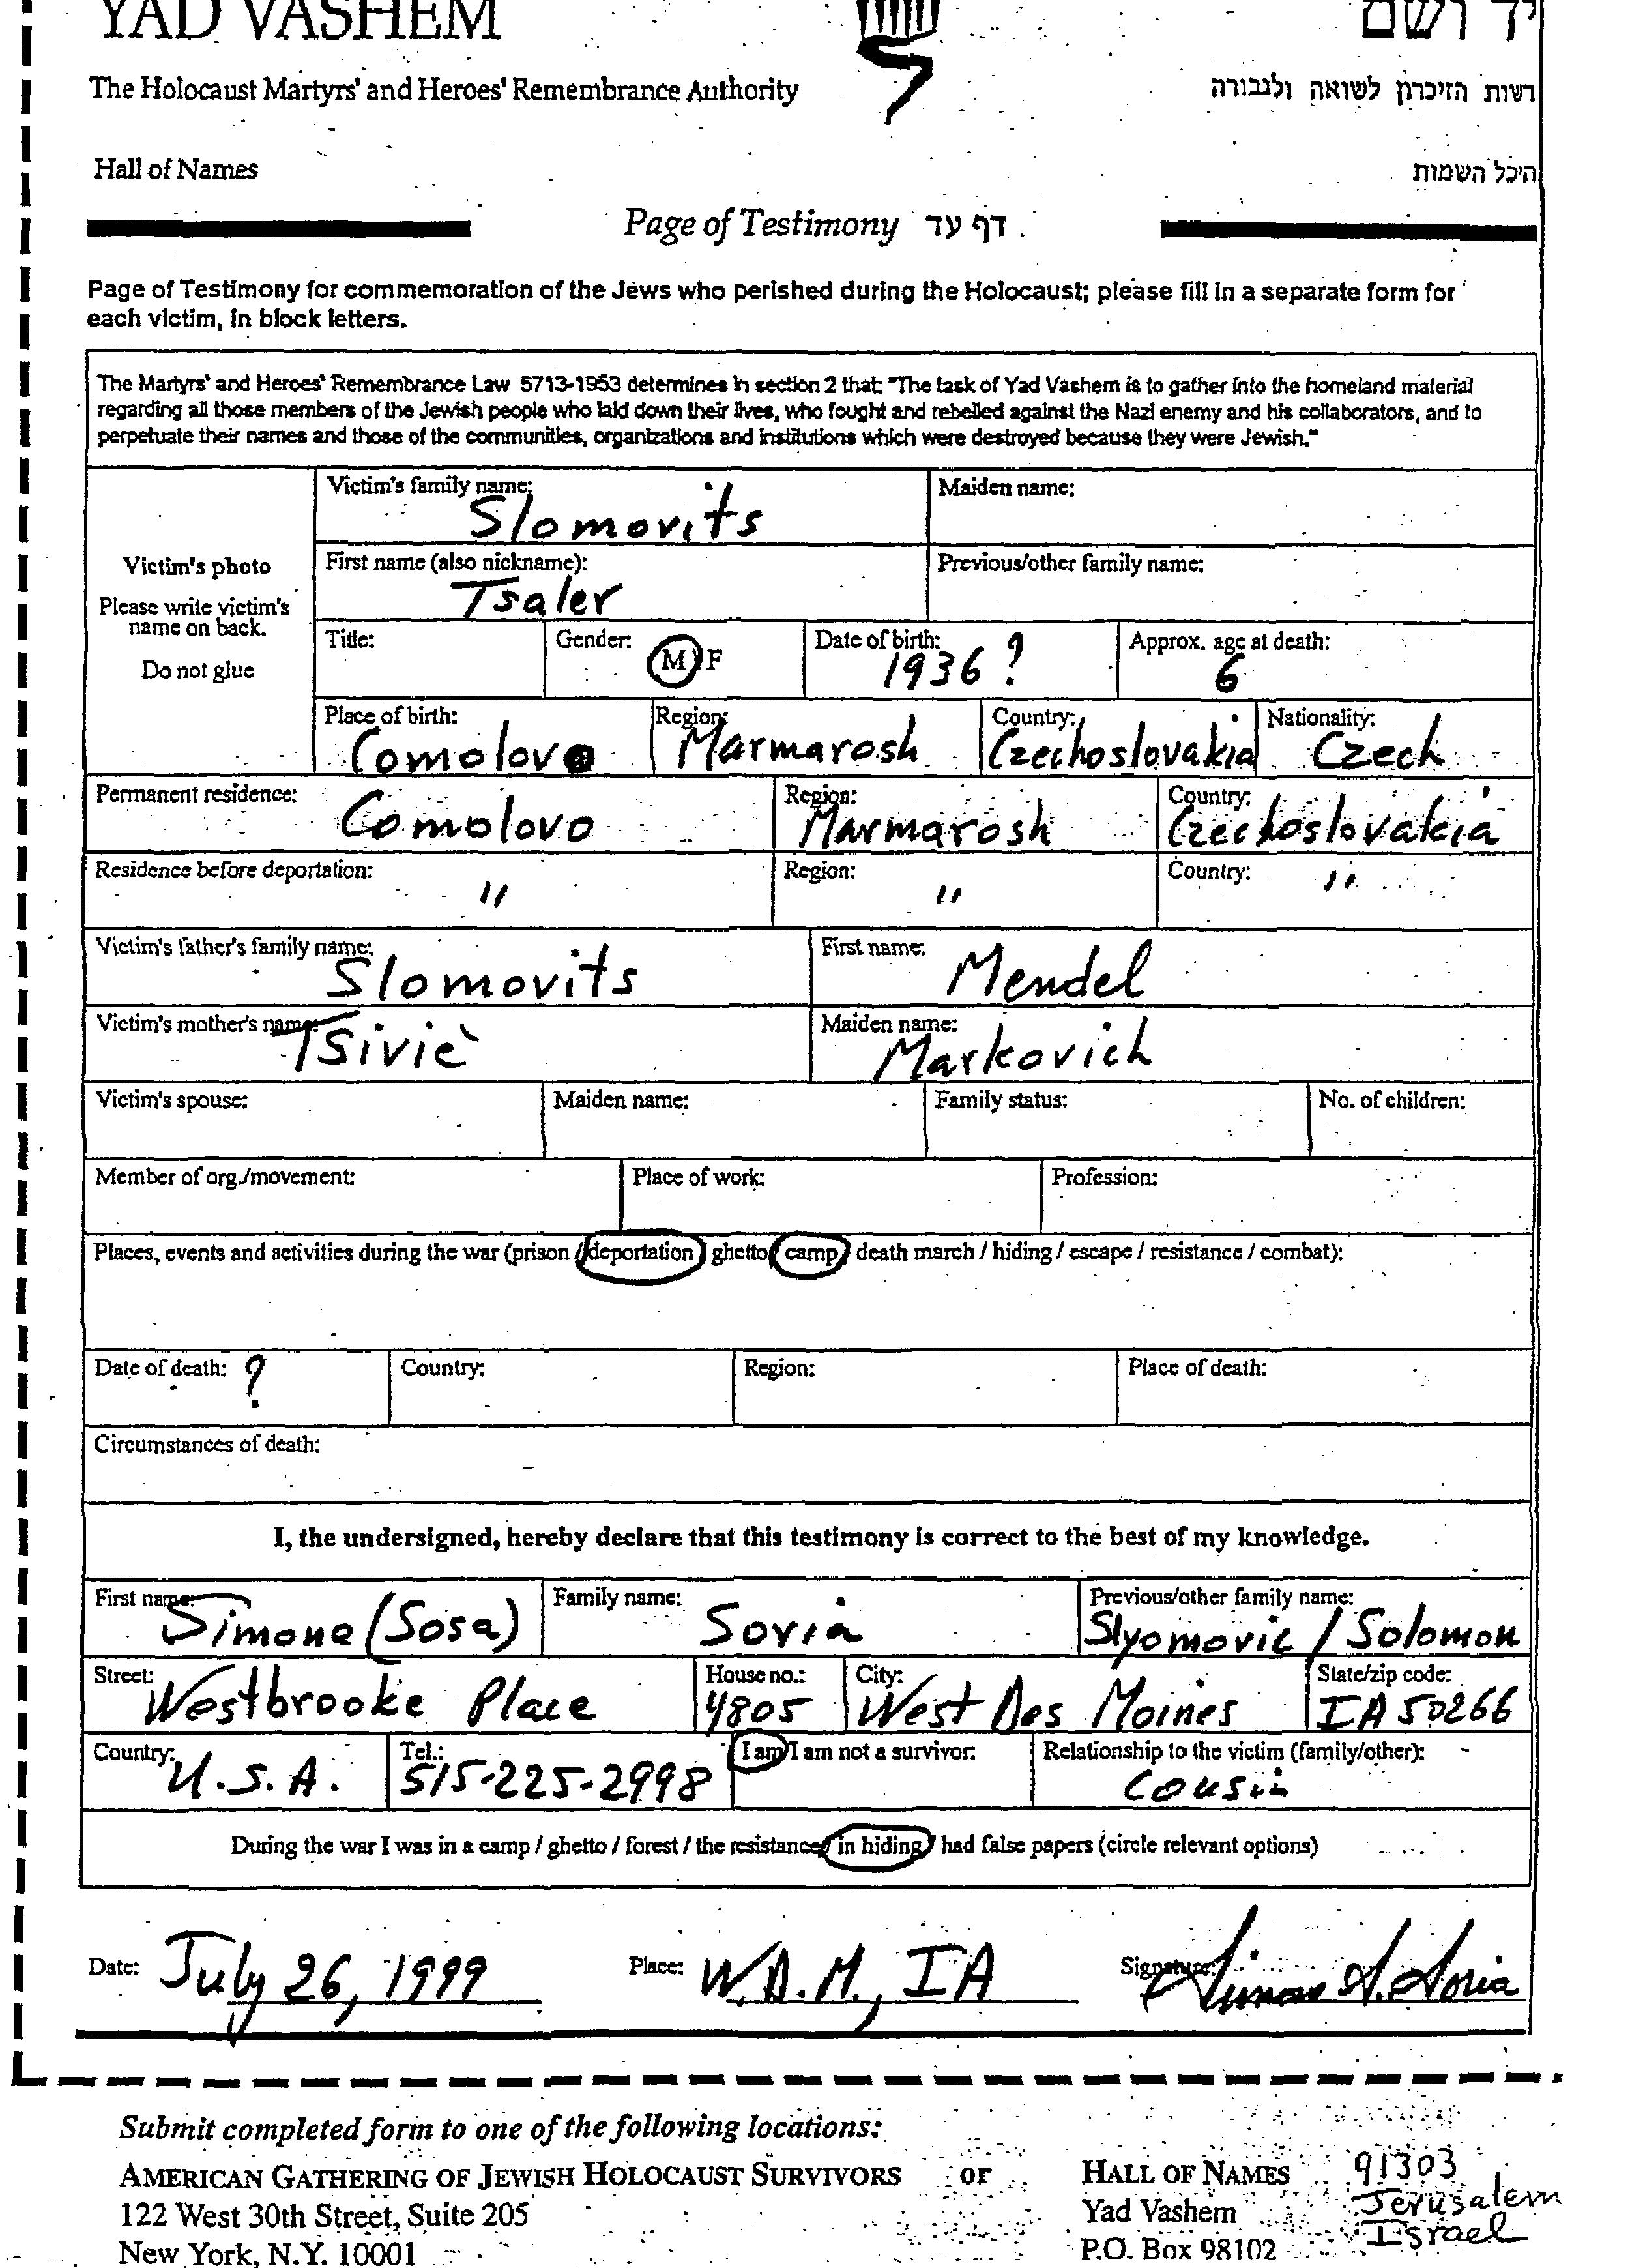 YAD VASHEM
יד ושם
The Holocaust Martyrs' and Heroes' Remembrance Authority
רשות הזיכרון לשואה ולגבורה
Hall of Names
היכל השמות
Page of Testimony דף עד
Page of Testimony for commemoration of the Jews who perished during the Holocaust; please fill in a separate form for
each victim, in block letters.
The Martyrs' and Heroes' Remembrance Law 5713-1953 determines in section 2 that: "The task of Yad Vashem is to gather into the homeland material
regarding all those members of the Jewish people who laid down their lives, who fought and rebelled against the Nazi enemy and his collaborators, and to
perpetuate their names and those of the communities, organizations and institutions which were destroyed because they were Jewish."
Victim's photo
Please write victim's
name on back.
Do not glue
Victim's family name: Slomovits
Maiden name:
First name (also nickname): Tsaler
Previous/other family name:
Title:
Gender: M / F
Date of birth: 1936 ?
Approx. age at death: 6
Place of birth: Comolovo
Region: Marmarosh
Country: Czechoslovakia
Nationality: Czech
Permanent residence: Comolovo
Region: Marmarosh
Country: Czechoslovakia
Residence before deportation: "
Region: "
Country: "
Victim's father's family name: Slomovits
First name: Mendel
Victim's mother's name: Tsiviè
Maiden name: Markovich
Victim's spouse:
Maiden name:
Family status:
No. of children:
Member of org./movement:
Place of work:
Profession:
Places, events and activities during the war (prison / deportation / ghetto / camp / death march / hiding / escape / resistance / combat):
Date of death: ?
Country:
Region:
Place of death:
Circumstances of death:
I, the undersigned, hereby declare that this testimony is correct to the best of my knowledge.
First name: Simone (Sosa)
Family name: Soria
Previous/other family name: Slyomovic / Solomon
Street: Westbrooke Place
House no.: 4805
City: West Des Moines
State/zip code: IA 50266
Country: U.S.A.
Tel.: 515-225-2998
I am / I am not a survivor.
Relationship to the victim (family/other): Cousin
During the war I was in a camp / ghetto / forest / the resistance / in hiding / had false papers (circle relevant options)
Date: July 26, 1999
Place: W.D.M., IA
Signature: Simone S. Soria
Submit completed form to one of the following locations:
AMERICAN GATHERING OF JEWISH HOLOCAUST SURVIVORS or
122 West 30th Street, Suite 205
New York, N.Y. 10001
HALL OF NAMES 91303
Yad Vashem Jerusalem
P.O. Box 98102 Israel